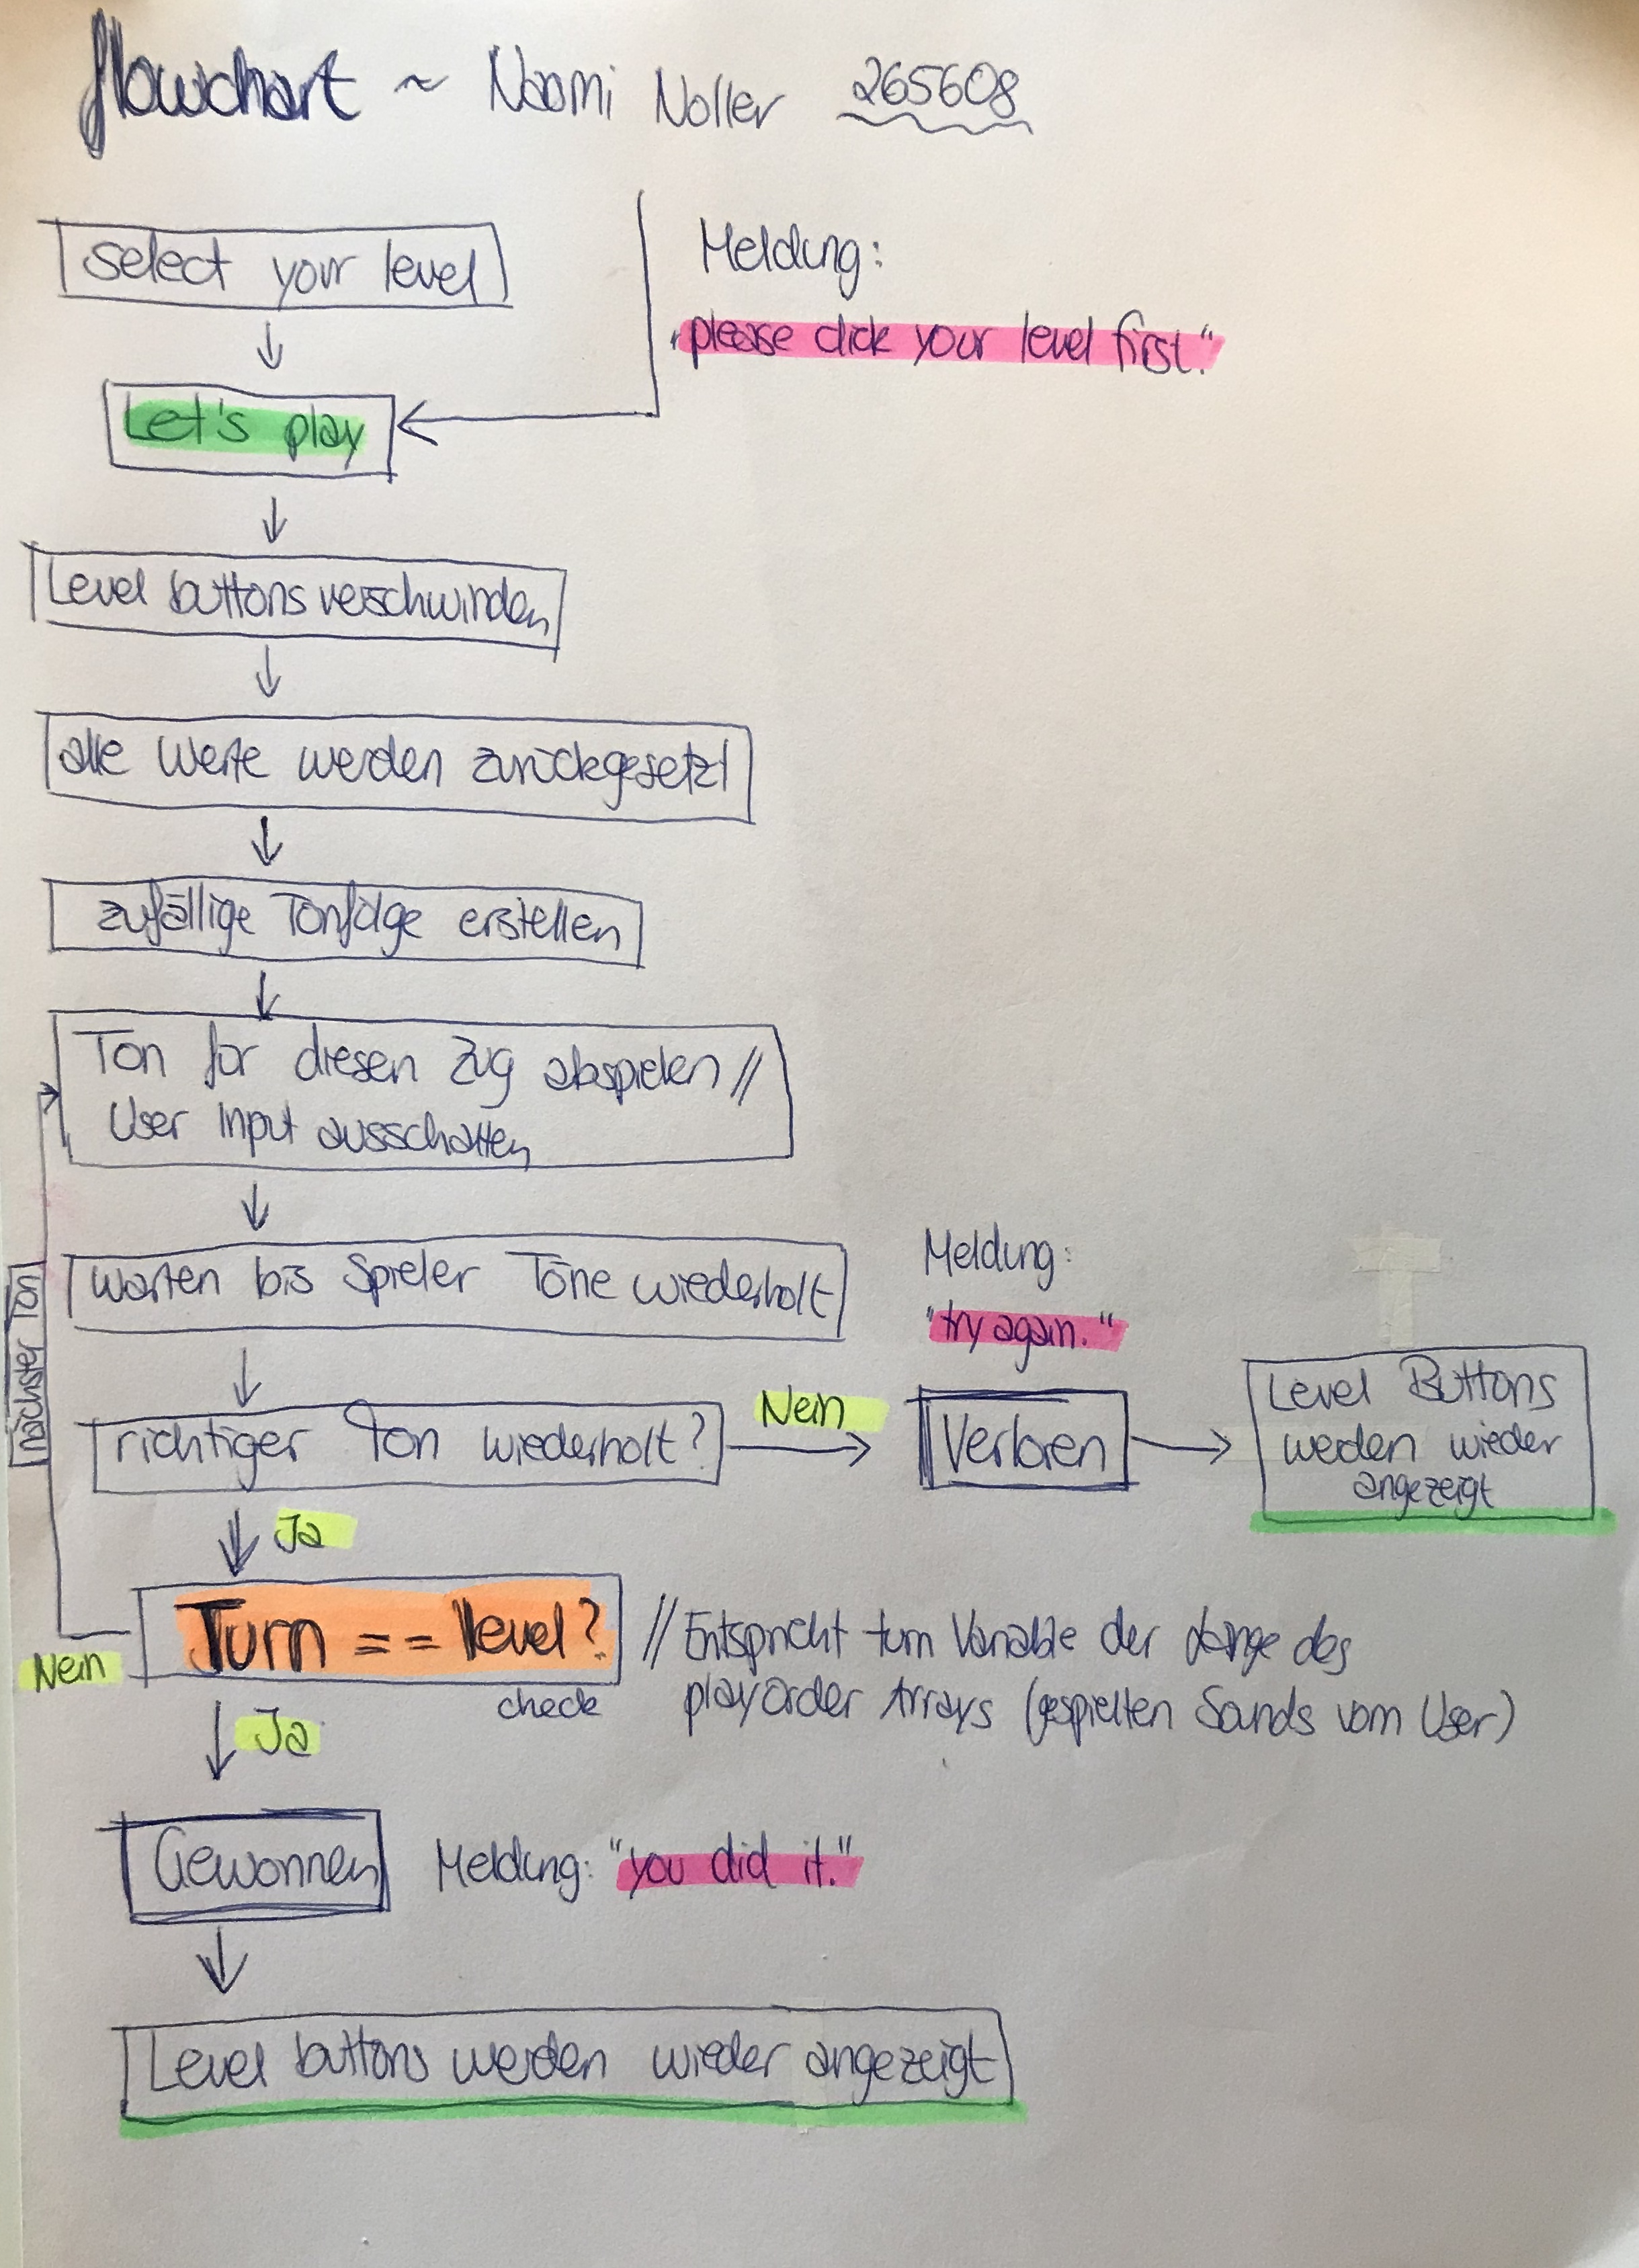 flowchart ~ Naomi Noller 265608
select your level
Meldung:
"please click your level first."
Let's play
Level buttons verschwinden
alle Werte werden zurückgesetzt
zufällige Tonfolge erstellen
Ton für diesen Zug abspielen //
User Input ausschalten
warten bis Spieler Töne wiederholt
Meldung:
"try again."
nächster Ton
richtiger Ton wiederholt?
Nein
Verloren
Level Buttons
werden wieder
angezeigt
Ja
Turn == level?
check
// Entspricht turn Variable der Länge des
playorder Arrays (gespielten Sounds vom User)
Nein
Ja
Gewonnen
Meldung: "you did it."
Level buttons werden wieder angezeigt